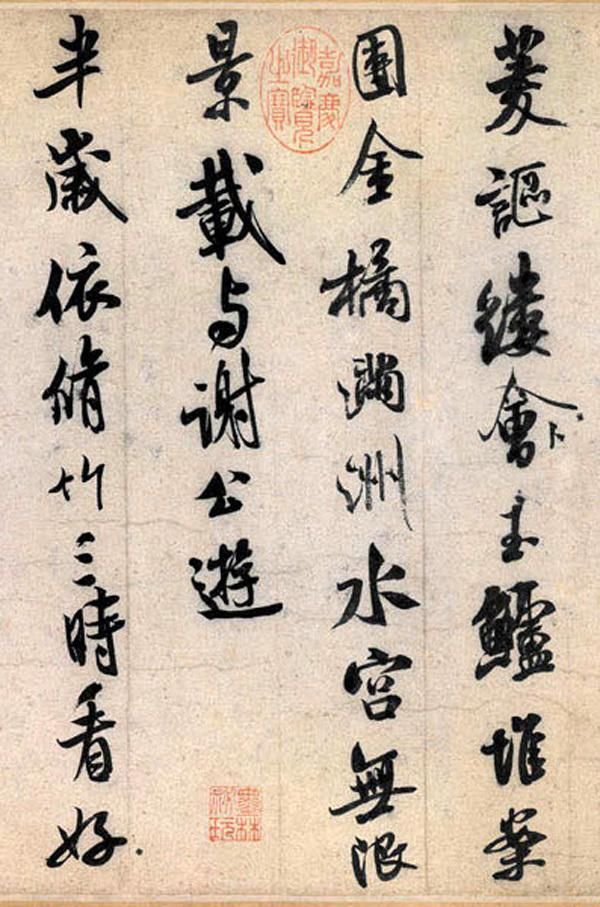 菱謳縷會玉鱸堆案
團金橘滿洲水宮無限
景載与謝公遊
半歲依脩竹三時看好
嘉慶御覽之寶